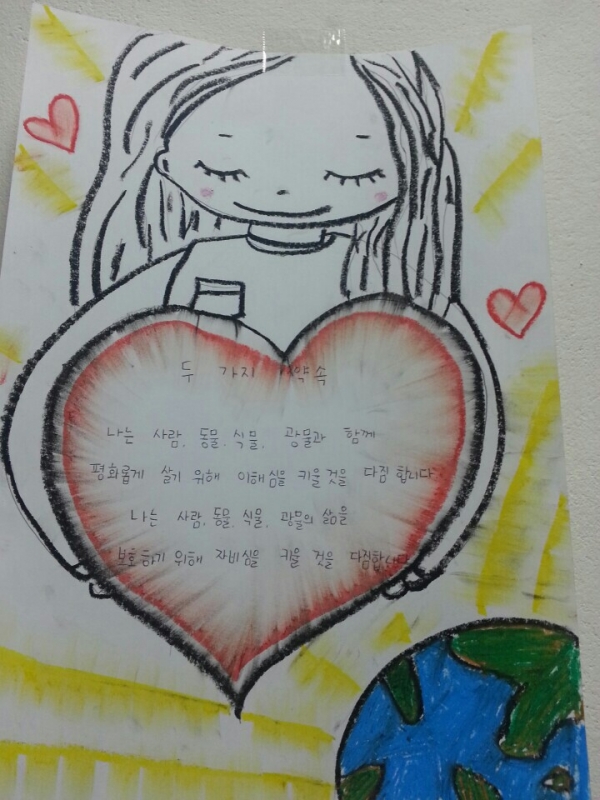 두 가지 약속
나는 사람, 동물, 식물, 광물과 함께
평화롭게 살기 위해 이해심을 키울 것을 다짐 합니다.
나는 사람, 동물, 식물, 광물의 삶을
보호하기 위해 자비심을 키울 것을 다짐합니다